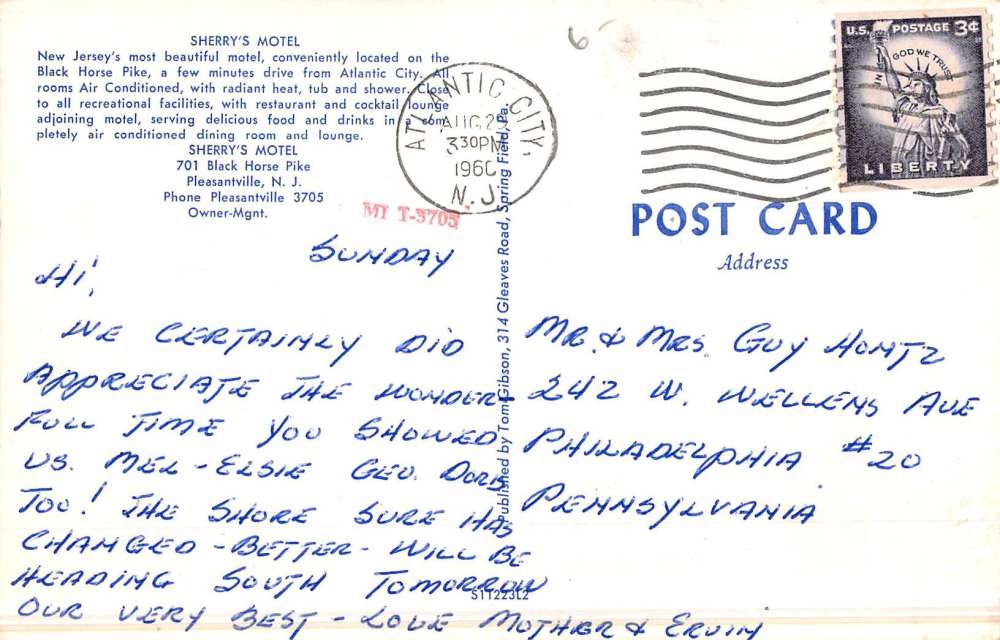 SHERRY'S MOTEL
New Jersey's most beautiful motel, conveniently located on the
Black Horse Pike, a few minutes drive from Atlantic City. All
rooms Air Conditioned, with radiant heat, tub and shower. Close
to all recreational facilities, with restaurant and cocktail lounge
adjoining motel, serving delicious food and drinks in a com-
pletely air conditioned dining room and lounge.
SHERRY'S MOTEL
701 Black Horse Pike
Pleasantville, N. J.
Phone Pleasantville 3705
Owner-Mgnt.
MI T-3705
6
ATLANTIC CITY,
AUG 2
3 30PM
1960
N. J.
U.S. POSTAGE 3¢
IN GOD WE TRUST
LIBERTY
POST CARD
Address
Published by Tom Gibson, 314 Gleaves Road, Spring Field, Pa.
SUNDAY
Hi,
WE CERTAINLY DID
APPRECIATE THE WONDER-
FULL TIME YOU SHOWED
US. MEL - ELSIE GEO. DORIS
TOO! THE SHORE SURE HAS
CHANGED - BETTER - WILL BE
HEADING SOUTH TOMORROW
OUR VERY BEST - LOVE MOTHER & ERVIN
S11223L2
MR. & MRS. GUY HONTZ
242 W. WELLENS AVE
PHILADELPHIA #20
PENNSYLVANIA